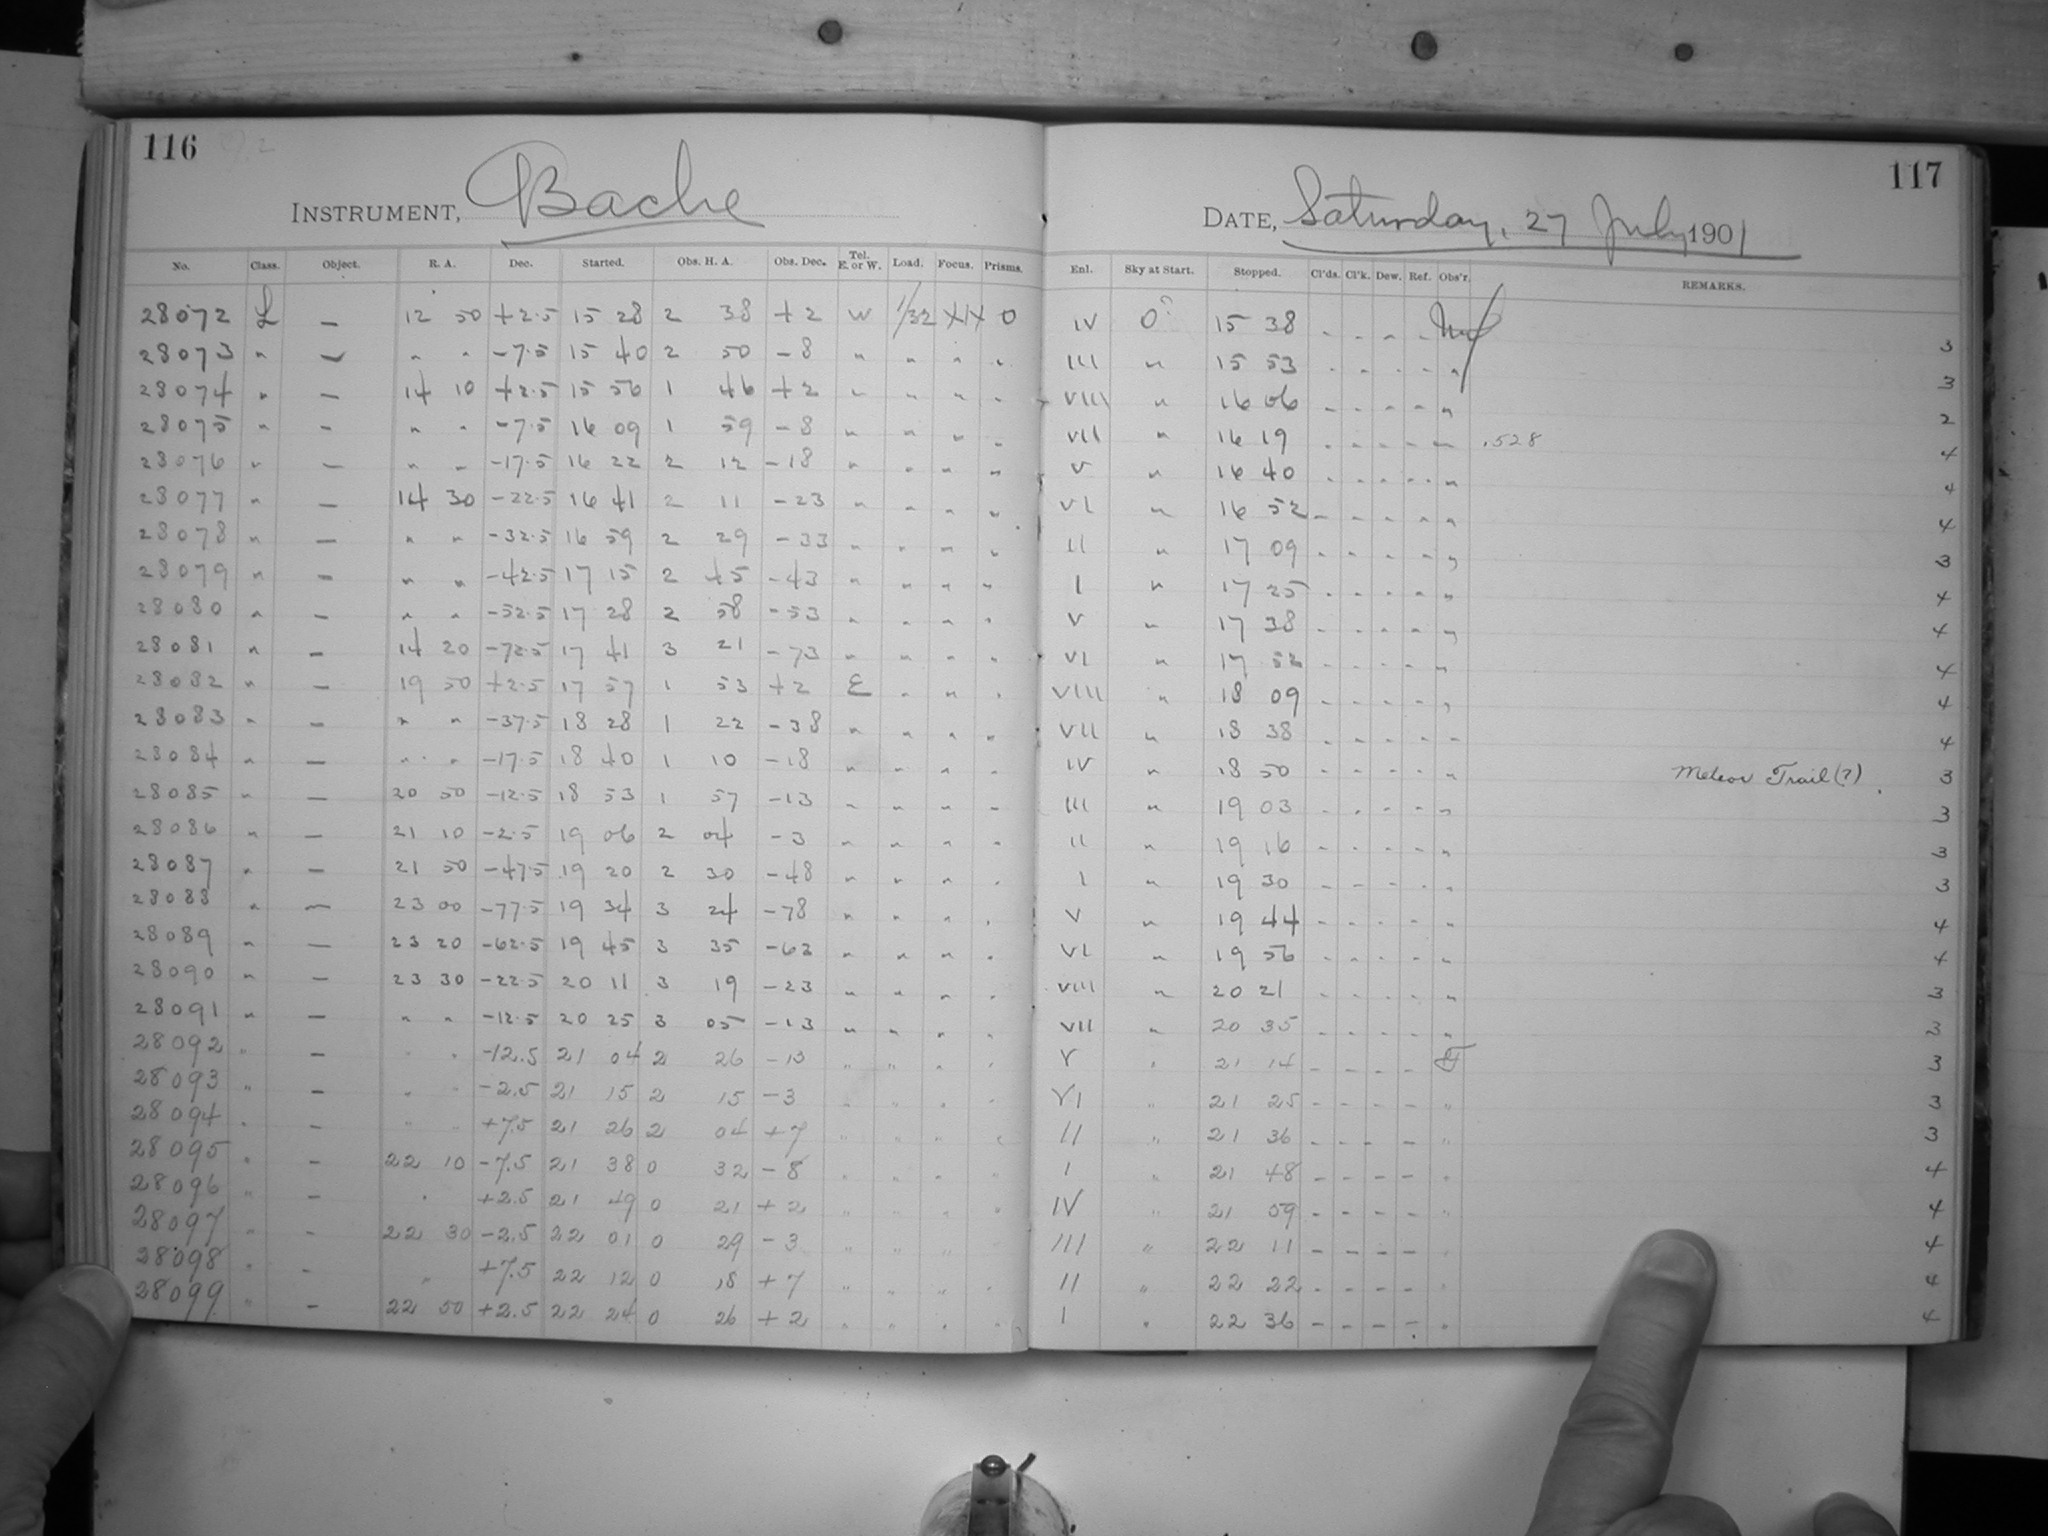 116
117
INSTRUMENT, Bache
DATE, Saturday, 27 July 1901
No. Class. Object. R. A. Dec. Started. Obs. H. A. Obs. Dec. Tel. E. or W. Load. Focus. Prisms. Enl. Sky at Start. Stopped. Cl'ds. Cl'k. Dew. Ref. Obs'r. REMARKS.
28072 L — 12 50 +2.5 15 28 2 38 +2 W 1/32 XIX 0 IV 0? 15 38 - - - - 3
28073 " — " " -7.5 15 40 2 50 -8 " " " " III " 15 53 - - - - " 3
28074 " — 14 10 +2.5 15 56 1 46 +2 " " " " VIII " 16 06 - - - - " 2
28075 " — " " -7.5 16 09 1 59 -8 " " " " VII " 16 19 - - - - " .528 4
28076 " — " " -17.5 16 22 2 12 -18 " " " " V " 16 40 - - - - " 4
28077 " — 14 30 -22.5 16 41 2 11 -23 " " " " VI " 16 52 - - - - " 4
28078 " — " " -32.5 16 59 2 29 -33 " " " " II " 17 09 - - - - " 3
28079 " — " " -42.5 17 15 2 45 -43 " " " " I " 17 25 - - - - " 4
28080 " — " " -52.5 17 28 2 58 -53 " " " " V " 17 38 - - - - " 4
28081 " — 14 20 -72.5 17 41 3 21 -73 " " " " VI " 17 52 - - - - " 4
28082 " — 19 50 +2.5 17 57 1 53 +2 E " " " VIII " 18 09 - - - - " 4
28083 " — " " -37.5 18 28 1 22 -38 " " " " VII " 18 38 - - - - " 4
28084 " — " " -17.5 18 40 1 10 -18 " " " " IV " 18 50 - - - - " Meteor Trail (?) 3
28085 " — 20 50 -12.5 18 53 1 57 -13 " " " " III " 19 03 - - - - " 3
28086 " — 21 10 -2.5 19 06 2 04 -3 " " " " II " 19 16 - - - - " 3
28087 " — 21 50 -47.5 19 20 2 30 -48 " " " " I " 19 30 - - - - " 3
28088 " — 23 00 -77.5 19 34 3 24 -78 " " " " V " 19 44 - - - - " 4
28089 " — 23 20 -62.5 19 45 3 35 -62 " " " " VI " 19 56 - - - - " 4
28090 " — 23 30 -22.5 20 11 3 19 -23 " " " " VIII " 20 21 - - - - " 3
28091 " — " " -12.5 20 25 3 05 -13 " " " " VII " 20 35 - - - - " 3
28092 " — " " -12.5 21 04 2 26 -13 " " " " V " 21 14 - - - - 3
28093 " — " " -2.5 21 15 2 15 -3 " " " " VI " 21 25 - - - - " 3
28094 " — " " +7.5 21 26 2 04 +7 " " " " II " 21 36 - - - - " 3
28095 " — 22 10 -7.5 21 38 0 32 -8 " " " " I " 21 48 - - - - " 4
28096 " — " +2.5 21 49 0 21 +2 " " " " IV " 21 59 - - - - " 4
28097 " — 22 30 -2.5 22 01 0 29 -3 " " " " III " 22 11 - - - - " 4
28098 " — " +7.5 22 12 0 18 +7 " " " " II " 22 22 - - - - " 4
28099 " — 22 50 +2.5 22 24 0 26 +2 " " " " I " 22 36 - - - - " 4